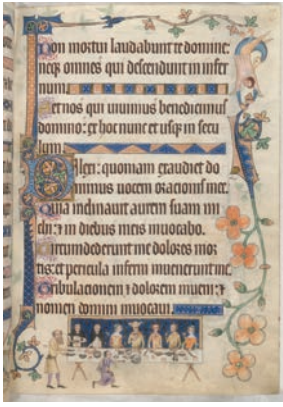 Non mortui laudabunt te domine:
neqz omnes qui descendunt in infer
num.
Set nos qui uiuimus benedicimus
domino: ex hoc nunc et usqz in secu
lum.
Dilexi: quoniam exaudiet do
minus uocem oracionis mee.
Quia inclinauit aurem suam mi
chi: ⁊ in diebus meis inuocabo.
Circumdederunt me dolores mor
tis: et pericula inferni inuenerunt me.
Tribulacionem ⁊ dolorem inueni: ⁊
nomen domini inuocaui.